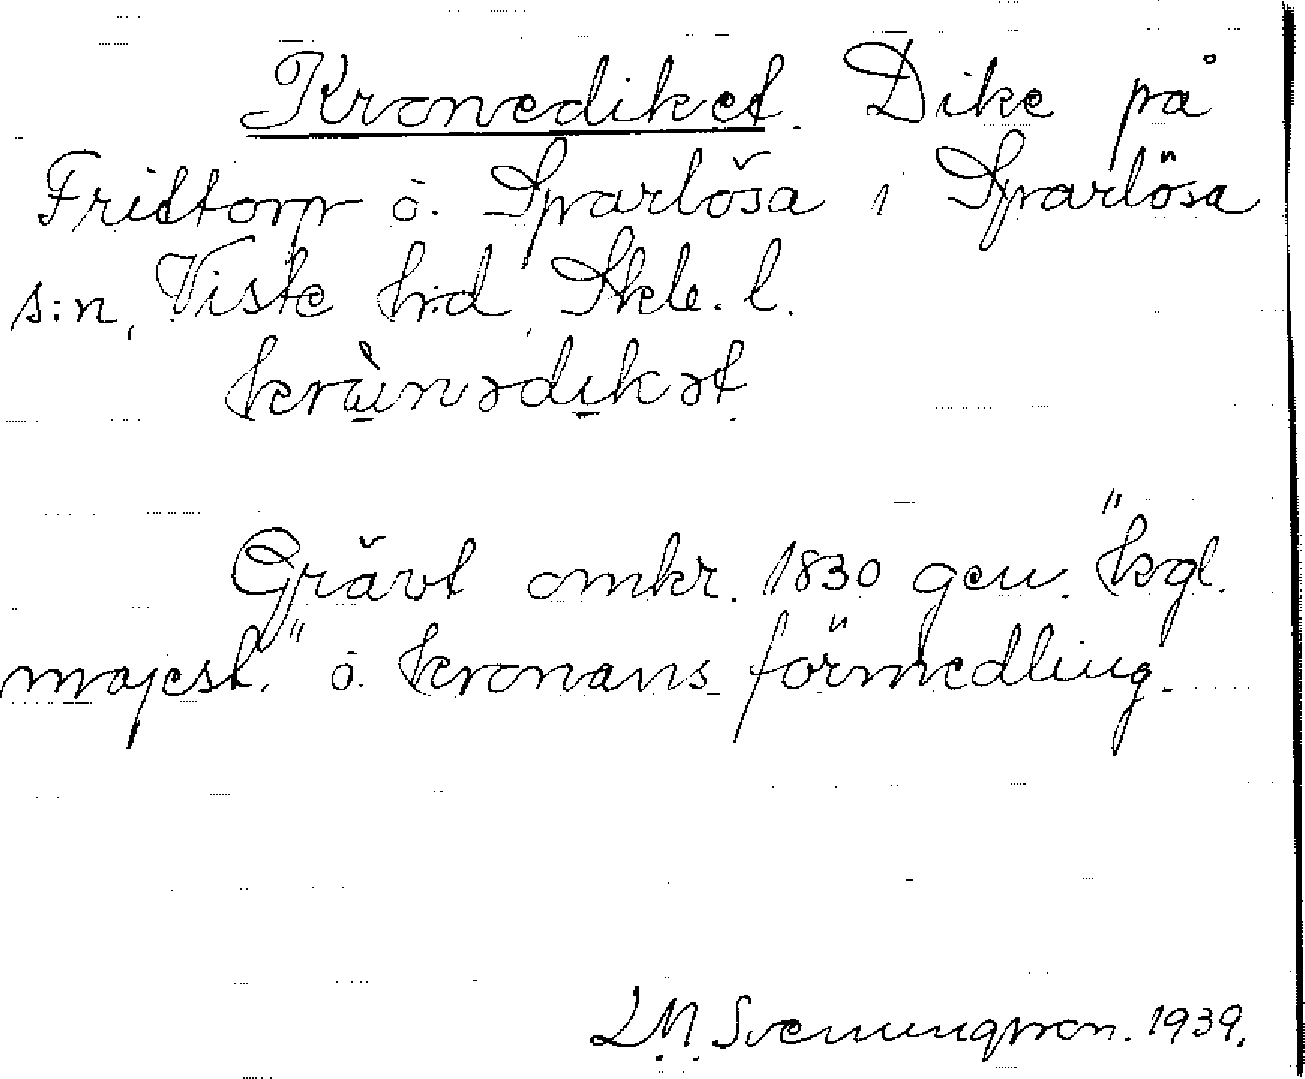 Kronediket. Dike på
Fridtorp o. Sparlösa i Sparlösa
s:n, Viste h:d, Skb. l.
Grävt omkr. 1830 gen. "kgl.
majest." o. kronans förmedling.
L.M. Svenungsson. 1939.